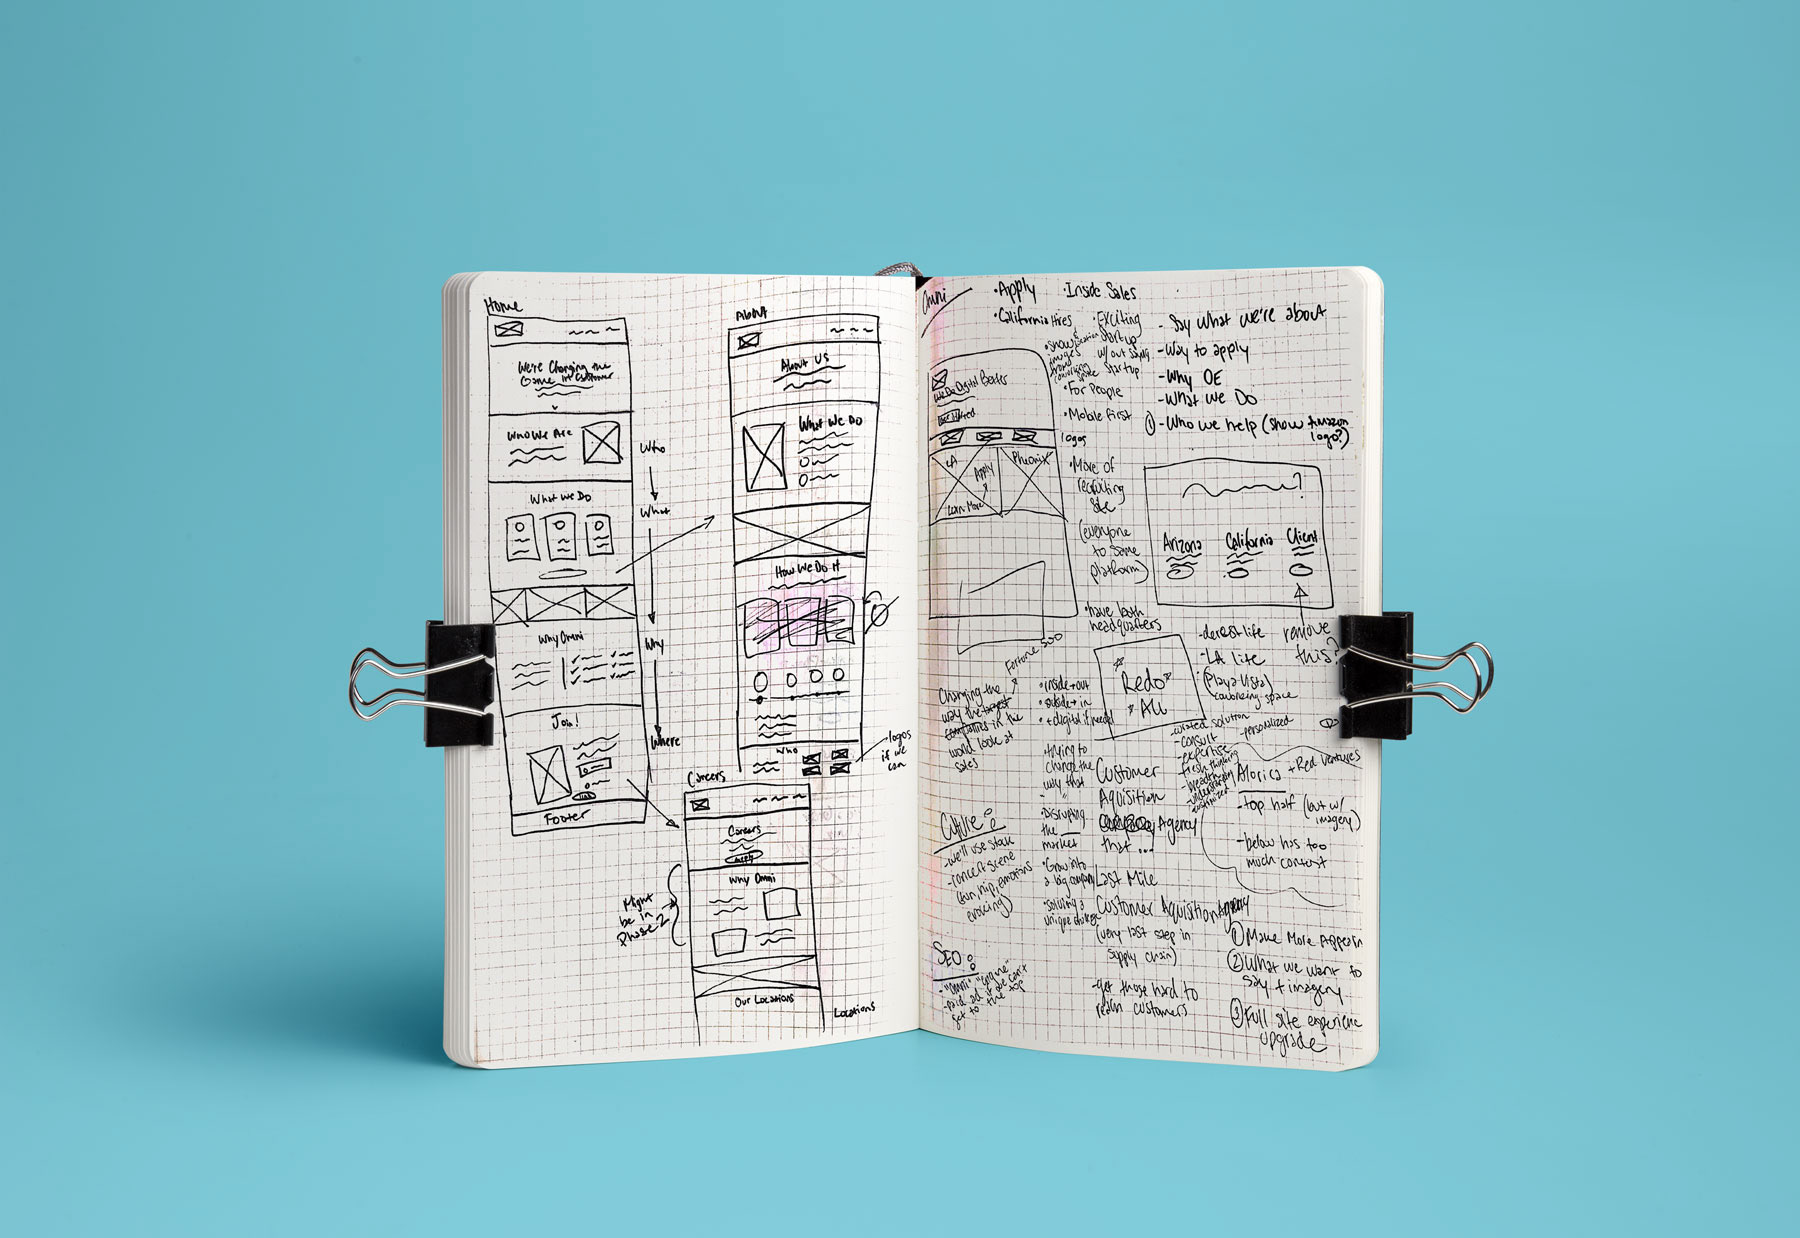 Home
We're Changing the
Game in Customer
Who We Are
What We Do
Why Omni
Join!
Footer
Who
What
Why
Where
About
About Us
What We Do
How We Do It
Who
logos
if we
can
Careers
Careers
Apply
Why Omni
Our Locations
Locations
Might
be in
Phase 2
Omni
• Apply
• California Hires
• show
images
• Inside Sales
• Exciting
Startup
w/out saying
startup
• For People
• Mobile First
We Do Digital Better
logos
LA
Apply
Learn More
Phoenix
• More of
recruiting
site
(everyone
to same
platform)
• have both
headquarters
- Say What we're about
- Way to apply
- Why OE
- What We Do
① - Who we help (show Amazon
logo?)
?
Arizona
California
Client
remove
this?
- desert life
- LA life
(Playa Vista)
coworking space
Redo
ALL
Fortune 500
Changing the
way the largest
companies in the
world look at
sales
• inside → out
• outside → in
• + digital if needed
• trying to
change the
way that
" "
• Disrupting
the
market
• Grow into
a big company
• solving a
unique
- curated solution
- consult
- expertise
- fresh thinking
- breadth
- understanding
- customized
- personalized
Customer
Aquisition
Agency
that ...
Last Mile
Customer Aquisition Agency
(very last step in
supply chain)
- get those hard to
reach customers
Alorica + Red Ventures
- top half (but w/
imagery)
- below has too
much content
① Make More Appealin
② What we want to
say + imagery
③ Full site experience
upgrade
Culture:
- we'll use stock
- concert scene
(fun, hip, emotions
evoking)
SEO:
- "omni" "engine"
- paid ad if we can't
get to the top